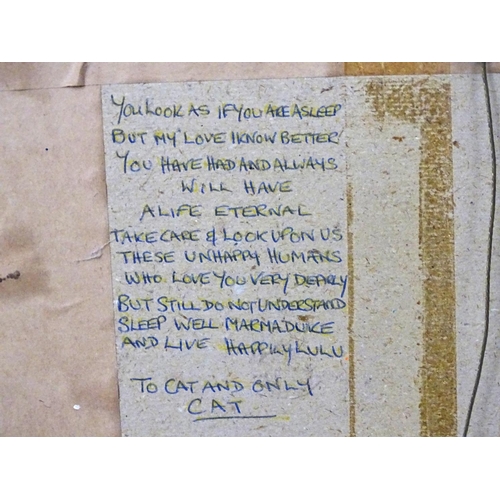 YOU LOOK AS IF YOU ARE ASLEEP
BUT MY LOVE I KNOW BETTER
YOU HAVE HAD AND ALWAYS
WILL HAVE
A LIFE ETERNAL
TAKE CARE & LOOK UPON US
THESE UNHAPPY HUMANS
WHO LOVE YOU VERY DEARLY
BUT STILL DO NOT UNDERSTAND
SLEEP WELL MARMADUKE
AND LIVE HAPPILY LULU
TO CAT AND ONLY
CAT